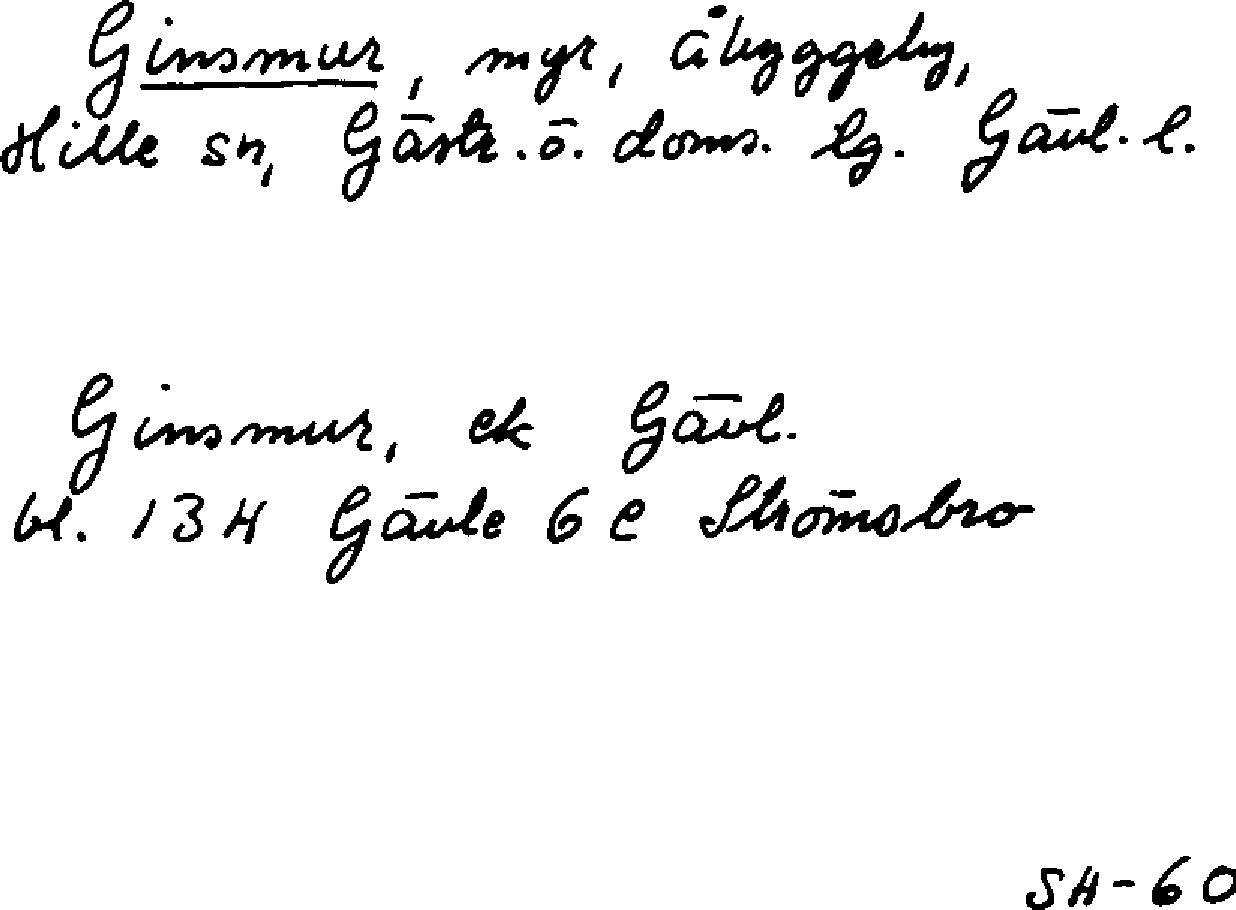 Ginsmur, myr, Åbyggeby,
Hille sn, Gästr. ö. doms. lg. Gävl. l.
Ginsmur, ek Gävl.
bl. 134 Gävle 6 c Strömsbro
SH-60